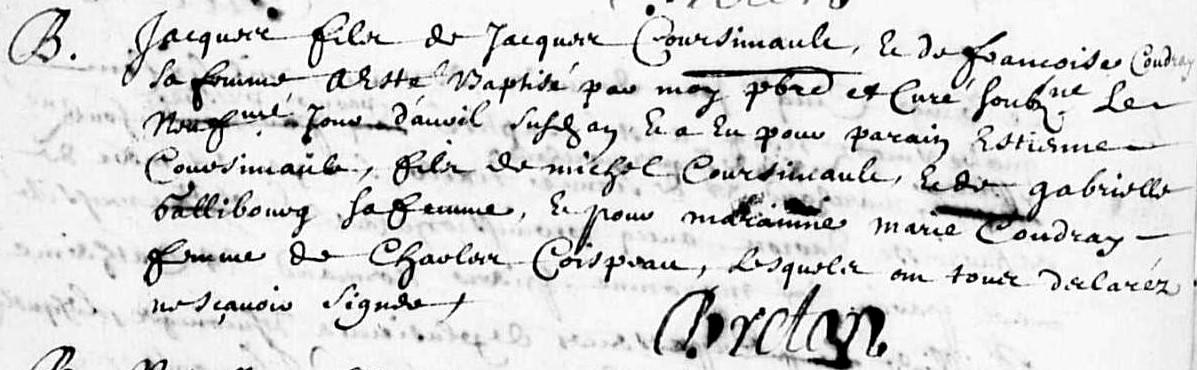 B. Jacques filz de Jacques Coursimault, & de francoise Coudray
sa femme, A esté Baptisé par moy pbre et Curé soubzne Le
Neufme Jour d'avril susd an & a Eu pour parain Estienne
Coursimault, filz de michel Coursimault, & de gabrielle
Gallibourg sa femme, & pour maraine marie Coudray
femme de Charles Coispeau, Lesquelz ont tous declaréz
ne sçavoir signer
Breton